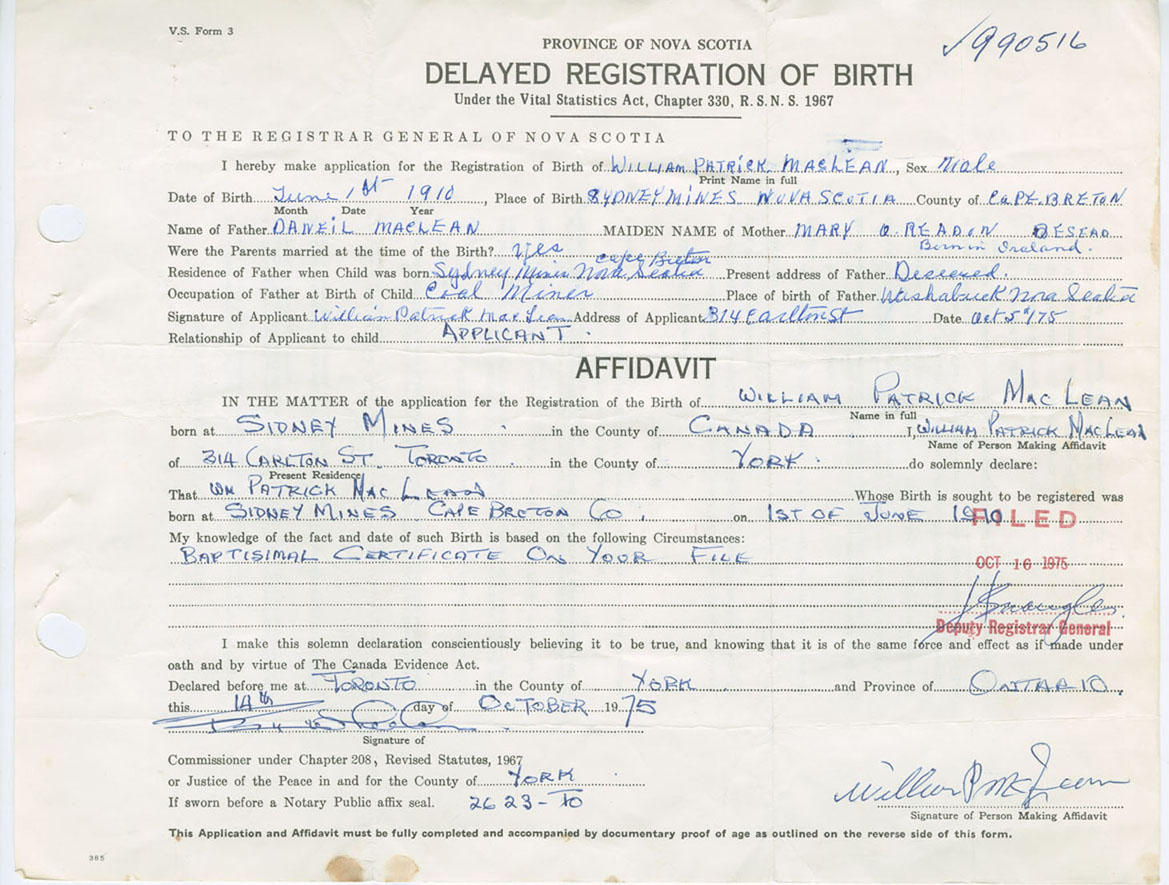 V.S. Form 3
✓990516
PROVINCE OF NOVA SCOTIA
DELAYED REGISTRATION OF BIRTH
Under the Vital Statistics Act, Chapter 330, R.S.N.S. 1967
TO THE REGISTRAR GENERAL OF NOVA SCOTIA
I hereby make application for the Registration of Birth of WILLIAM PATRICK MACLEAN, Sex Male
Print Name in full
Date of Birth June 1st 1910, Place of Birth SYDNEY MINES NOVA SCOTIA County of CAPE BRETON
Month Date Year
Name of Father DANEIL MACLEAN MAIDEN NAME of Mother MARY O READON DESEAD
Were the Parents married at the time of the Birth? yes Born in Ireland.
Cape Breton
Residence of Father when Child was born Sydney Mines Nova Scotia Present address of Father Deseased.
Occupation of Father at Birth of Child Coal Miner Place of birth of Father Washabuck Nova Scotia
Signature of Applicant William Patrick MacLean Address of Applicant 314 Carlton St Date Oct 5th/75
Relationship of Applicant to child APPLICANT.
AFFIDAVIT
IN THE MATTER of the application for the Registration of the Birth of WILLIAM PATRICK MAC LEAN
Name in full
born at SIDNEY MINES in the County of CANADA I, WILLIAM PATRICK MACLEAN
Name of Person Making Affidavit
of 314 CARLTON ST. TORONTO in the County of YORK. do solemnly declare:
Present Residence
That WM PATRICK MAC LEAN Whose Birth is sought to be registered was
born at SIDNEY MINES CAPE BRETON CO. on 1ST OF JUNE 1910
FILED
My knowledge of the fact and date of such Birth is based on the following Circumstances:
BAPTISIMAL CERTIFICATE ON YOUR FILE
OCT 16 1975
Deputy Registrar General
I make this solemn declaration conscientiously believing it to be true, and knowing that it is of the same force and effect as if made under
oath and by virtue of The Canada Evidence Act.
Declared before me at TORONTO in the County of YORK and Province of ONTARIO,
this 14th day of OCTOBER 1975
Signature of
Commissioner under Chapter 208, Revised Statutes, 1967
or Justice of the Peace in and for the County of YORK
If sworn before a Notary Public affix seal. 2623-TO
William P McLean
Signature of Person Making Affidavit
This Application and Affidavit must be fully completed and accompanied by documentary proof of age as outlined on the reverse side of this form.
385